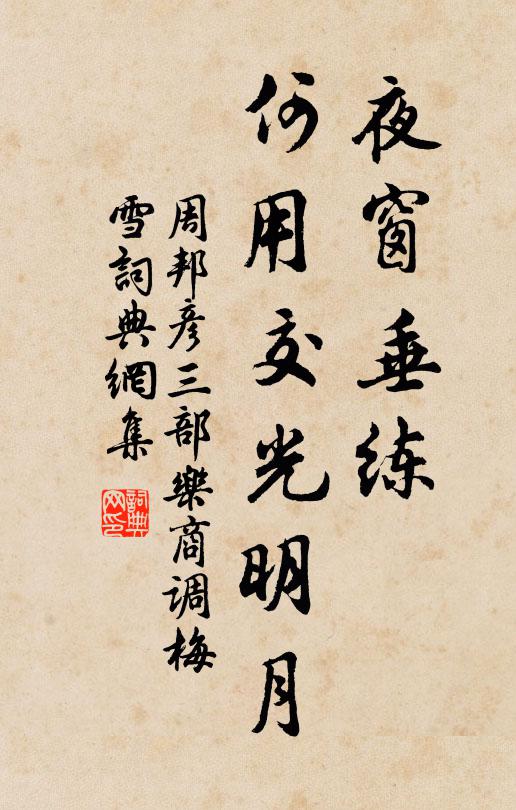 夜窗垂练
何用交光明月
周邦彦三部樂商调梅
雪詞典網集
詞典网印